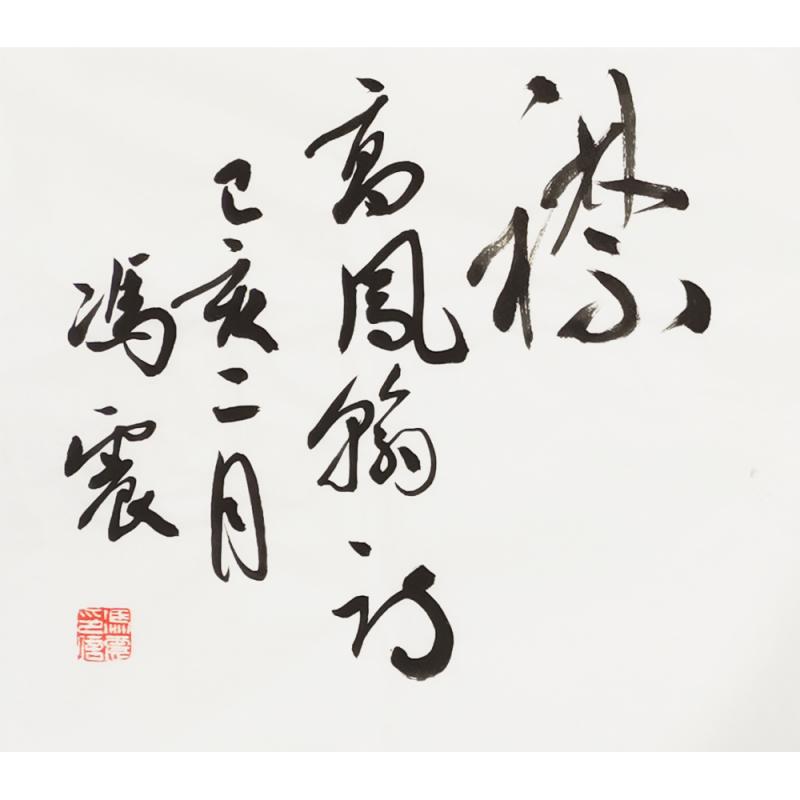 襟
高鳳翰詩
己亥二月
馮震
馮震印信